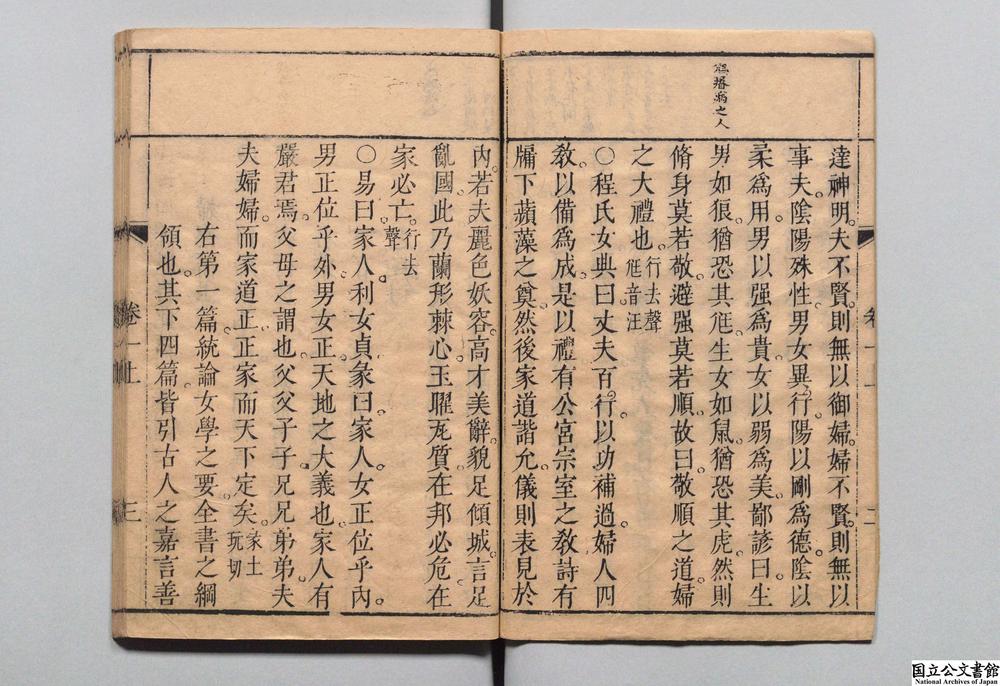 尩瘠病之人
達神明。夫不賢。則無以御婦。婦不賢。則無以
事夫。陰陽殊性。男女異行。陽以剛爲德。陰以
柔爲用。男以强爲貴。女以弱爲美。鄙諺曰。生
男如狼。猶恐其尩。生女如鼠。猶恐其虎。然則
脩身莫若敬。避强莫若順。故曰敬順之道。婦
之大禮也。行去聲尩音汪
○程氏女典曰。丈夫百行。以功補過。婦人四
教。以備爲成。是以禮有公宮宗室之教。詩有
牖下蘋藻之奠。然後家道諧允。儀則表見於
卷一上
二
內。若夫麗色妖容。高才美辭。貌足傾城。言足
亂國。此乃蘭形棘心。玉曜瓦質。在邦必危。在
家必亡。行去聲
○易曰。家人。利女貞。彖曰。家人。女正位乎內。
男正位乎外。男女正。天地之大義也。家人有
嚴君焉。父母之謂也。父父子子。兄兄弟弟。夫
夫婦婦。而家道正。正家而天下定矣。彖土玩切
右第一篇。統論女學之要。全書之綱
領也。其下四篇。皆引古人之嘉言善
卷一上
三
国立公文書館
National Archives of Japan